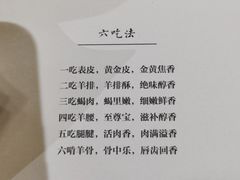 六吃法
一吃表皮，黄金皮，金黄焦香
二吃羊排，羊排酥，绝味醇香
三吃蝎肉，蝎里嫩，细嫩鲜香
四吃羊腰，至尊宝，滋补醇香
五吃腿腱，活肉香，肉满溢香
六啃羊骨，骨中乐，唇齿回香